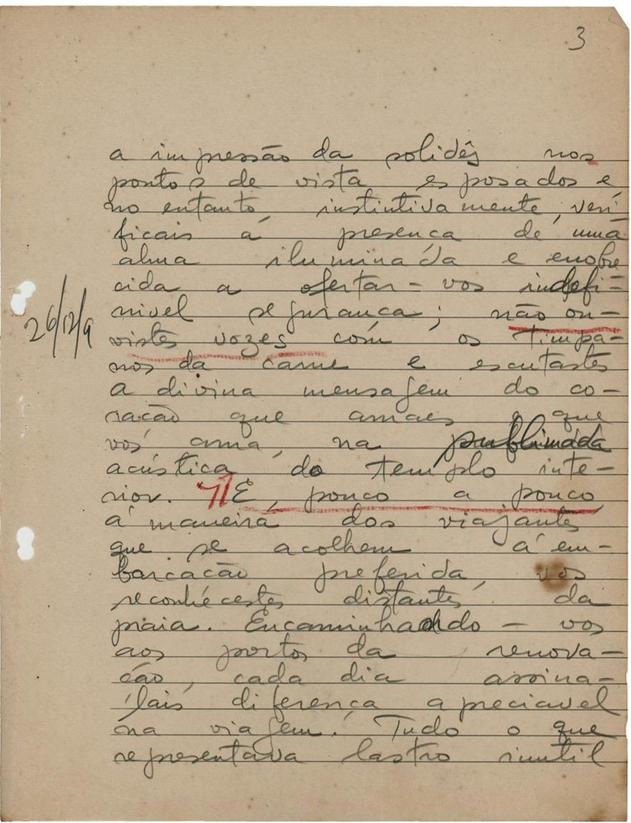 3
a impressão da solidês nos
pontos de vista esposados e,
no entanto, instintivamente, veri-
ficais a presença de uma
alma iluminada e enobre-
cida a ofertar-vos indefi-
nivel segurança; não ou-
26/12/9
vistes vozes com os timpa-
nos da carne e escutastes
a divina mensagem do co-
ração que amaes e que
vos ama, na sublimada
acústica do templo inte-
rior. E, pouco a pouco,
á maneira dos viajantes
que se acolhem á em-
barcação preferida, vos
reconhecestes distantes da
praia. Encaminhando-vos
aos portos da renova-
ção, cada dia assina-
lais diferença apreciavel
na viagem. Tudo o que
representava lastro inutil